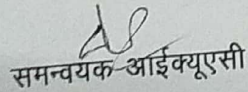 समन्वयक-आईक्यूएसी